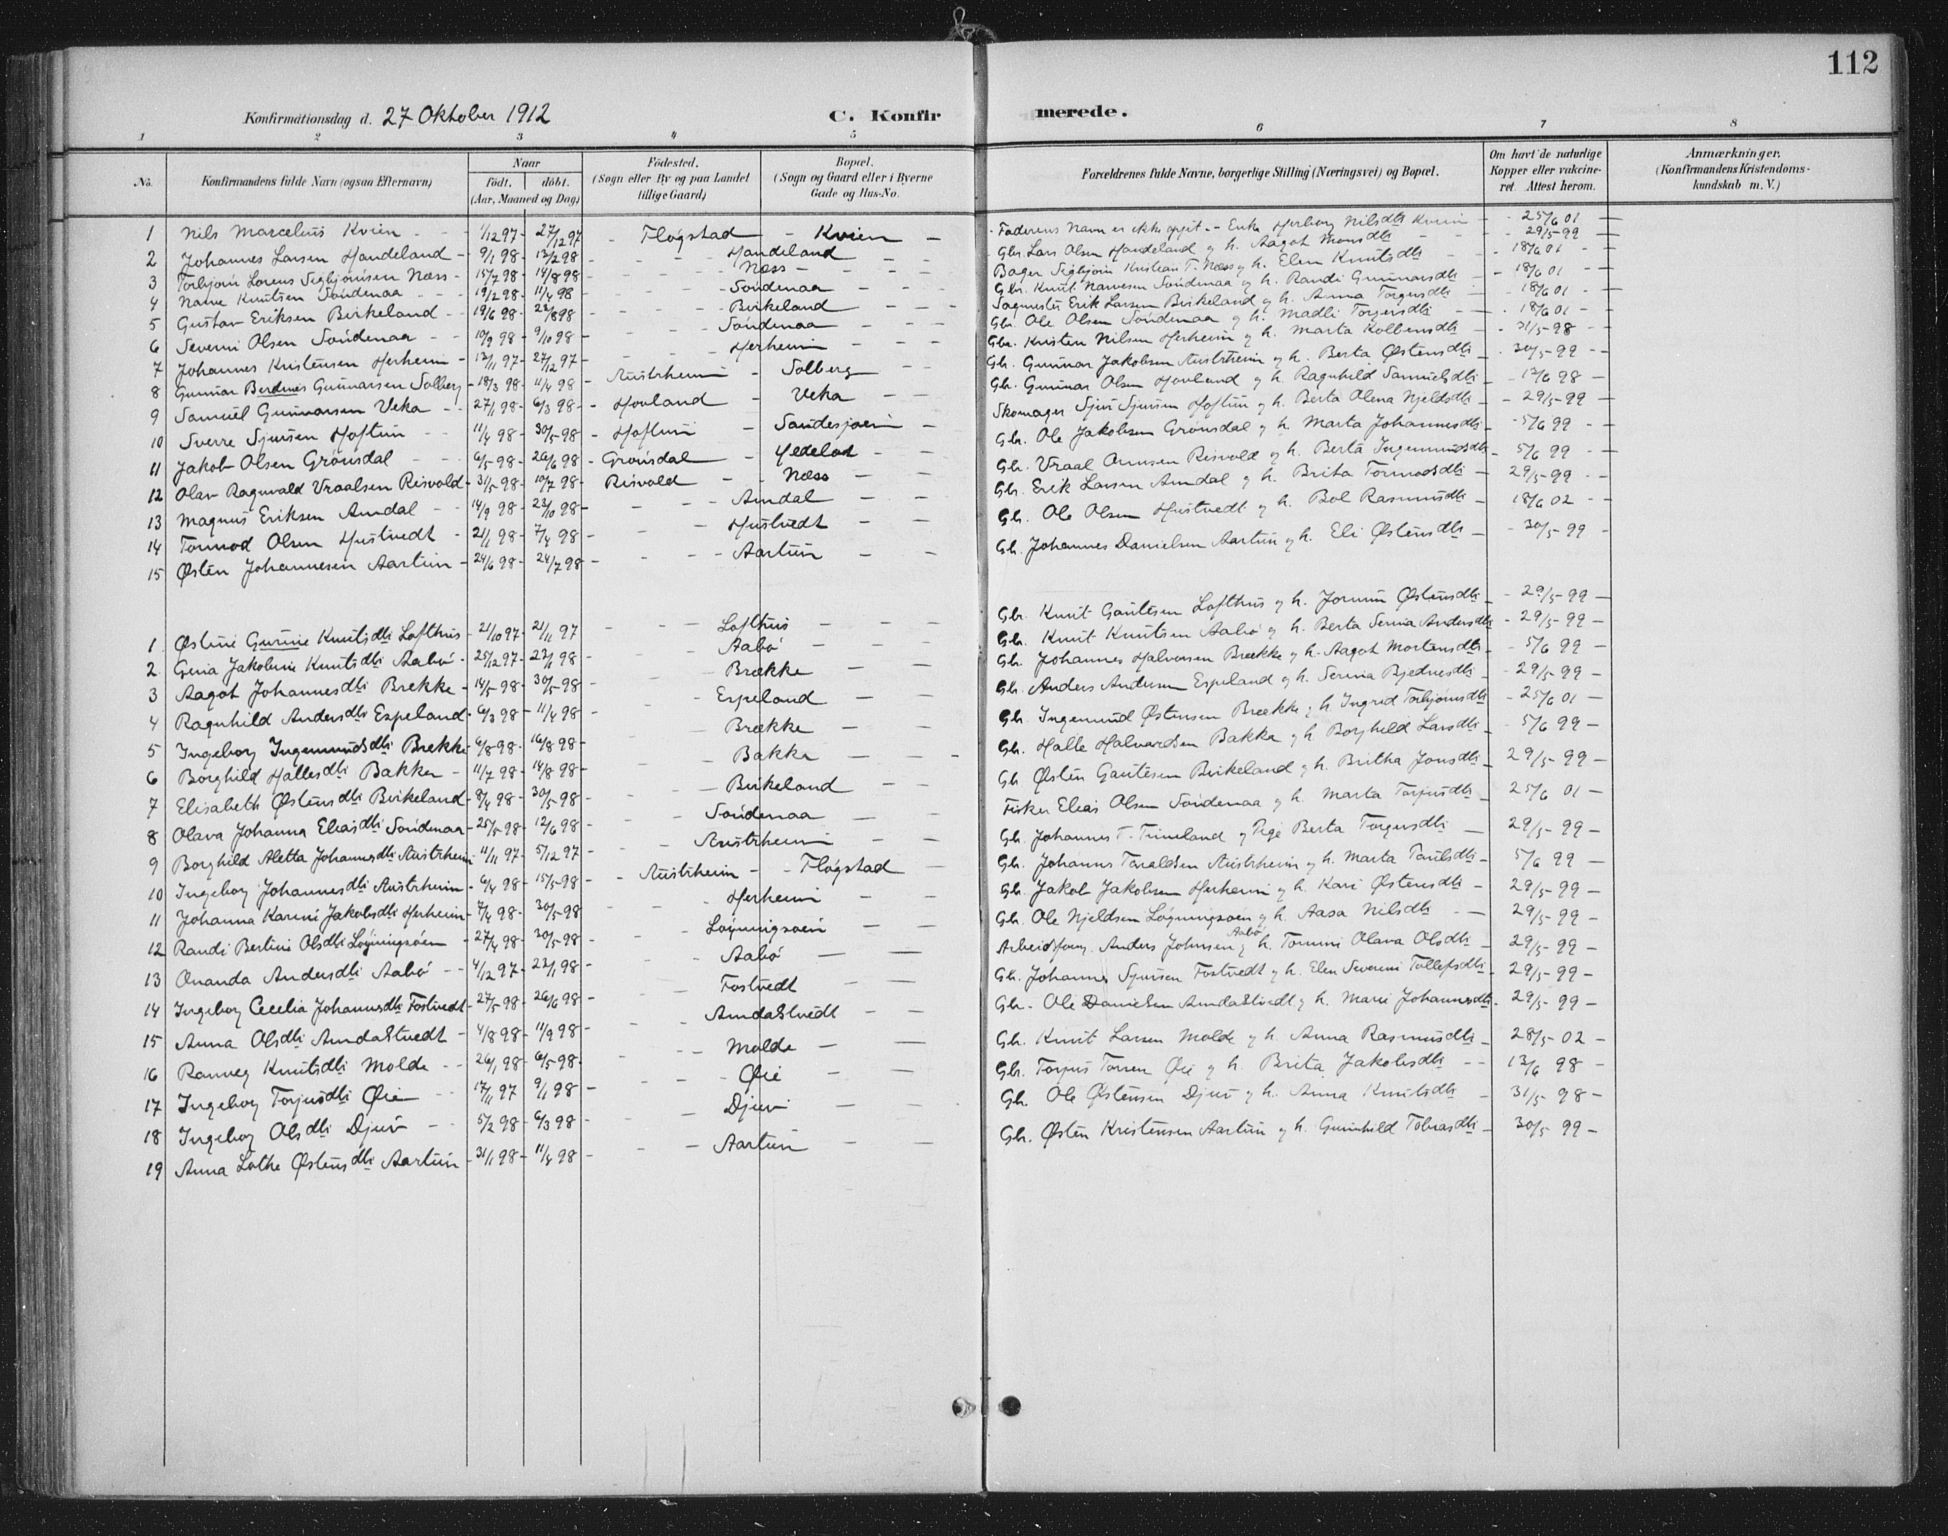 112
Konfirmationsdag d. 27 Oktober 1912 C. Konfirmerede.
1 2 3 4 5 6 7 8
No. Konfirmandens fulde Navn (ogsaa Efternavn) Naar födt. döbt. (Aar, Maaned og Dag) Födested. (Sogn eller By og paa Landet tillige Gaard) Bopæl. (Sogn og Gaard eller i Byerne Gade og Hus-No. Forældrenes fulde Navne, borgerlige Stilling (Næringsvei) og Bopæl. Om havt de naturlige Kopper eller vakcineret. Attest herom. Anmærkninger. (Konfirmandens Kristendomskundskab m. V.)
1 Nils Marcelius Kvien - 1/12 97 - 27/12 97 - Fløgstad - Kvien - Faderens Navn er ikke opgit. - Enke Herborg Nilsdtr Kvien - 25/6 01 -
2 Johannes Larsen Handeland - 9/1 98 - 13/2 98 - Handeland - Gbr. Lars Olsen Handeland og h. Aagot Monsdtr - 29/5 99 -
3 Torbjörn Lorens Sigbjörnsen Næss - 15/7 98 - 14/8 98 - Næss - Bager Sigbjörn Kristian T. Næss og h. Elen Knutsdtr - 18/6 01 -
4 Narve Knutsen Söndenaa - 19/2 98 - 11/4 98 - Söndenaa - Gbr. Knut Narvesen Söndenaa og h. Randi Gunnarsdtr - 18/6 01 -
5 Gustav Eriksen Birkeland - 19/6 98 - 22/8 98 - Birkeland - Sagmester Erik Larsen Birkeland og h. Anna Torgersdtr - 18/6 01 -
6 Severin Olsen Söndenaa - 10/9 98 - 9/10 98 - Söndenaa - Gbr. Ole Olsen Söndenaa og h. Madli Torgersdtr - 18/6 01 -
7 Johannes Kristensen Herheim - 12/11 97 - 27/12 97 - Herheim - Gbr. Kristen Nilsen Herheim og h. Marta Kolbensdtr - 31/5 98 -
8 Gunnar Berdines Gunnarsen Solberg - 18/3 98 - 11/4 98 - Austrheim - Solberg - Gbr. Gunnar Jakobsen Austrheim og h. Berta Østensdtr - 30/5 99 -
9 Samuel Gunnarsen Veka - 27/1 98 - 6/3 98 - Hovland - Veka - Gbr. Gunnar Olsen Hovland og h. Ragnhild Samuelsdtr - 12/6 98 -
10 Sverre Sjursen Hoftun - 11/4 98 - 30/5 98 - Hoftun - Sandesjoen - Skomager Sjur Sjursen Hoftun og h. Berta Olena Njeldsdtr - 29/5 99 -
11 Jakob Olsen Grönsdal - 6/5 98 - 26/6 98 - Grönsdal - Gbr. Ole Jakobsen Grönsdal og h. Marta Johannesdtr - 5/6 99 -
12 Olav Ragnvald Vraalsen Risvold - 31/5 98 - 10/7 98 - Risvold - Næss - Gbr. Vraal Ormsen Risvold og h. Berta Ingemundsdtr - 5/6 99 -
13 Magnus Eriksen Amdal - 14/9 98 - 23/10 98 - Amdal - Gbr. Erik Larsen Amdal og h. Brita Tormodsdtr - 29/5 99 -
14 Tormod Olsen Hustvedt - 21/1 98 - 7/4 98 - Hustvedt - Gbr. Ole Olsen Hustvedt og h. Bol Rasmusdtr - 18/6 02 -
15 Østen Johannesen Aartun - 24/6 98 - 24/7 98 - Aartun - Gbr. Johannes Danielsen Aartun og h. Eli Østensdtr - 30/5 99 -
1 Østine Gurine Knutsdtr Lofthus - 21/10 97 - 21/11 97 - Lofthus - Gbr. Knut Gautesen Lofthus og h. Jorunn Østensdtr - 29/5 99 -
2 Gina Jakobine Knutsdtr Aabö - 25/12 97 - 23/1 98 - Aabö - Gbr. Knut Knutsen Aabö og h. Berta Serina Andersdtr - 29/5 99 -
3 Aagot Johannesdtr Brekke - 14/5 98 - 30/5 98 - Brække - Gbr. Johannes Halvorsen Brække og h. Aagot Mortensdtr - 5/6 99 -
4 Ragnhild Andersdtr Espeland - 6/3 98 - 11/4 98 - Espeland - Gbr. Anders Andersen Espeland og h. Serina Bjednesdtr - 29/5 99 -
5 Ingeborg Ingemundsdtr Brekke - 6/8 98 - 16/8 98 - Brække - Gbr. Ingemund Østensen Brække og h. Ingrid Torbjörnsdtr - 25/6 01 -
6 Borghild Hallesdtr Bakka - 11/7 98 - 14/8 98 - Bakka - Gbr. Halle Halvardsen Bakka og h. Borghild Larsdtr - 5/6 99 -
7 Elisabeth Østensdtr Birkeland - 8/4 98 - 30/5 98 - Birkeland - Gbr Østen Gautesen Birkeland og h. Britha Jonsdtr - 29/5 99 -
8 Olava Johanna Eliasdtr Söndenaa - 25/5 98 - 12/6 98 - Söndenaa - Fisker Elias Olsen Söndenaa og h. Marta Torjusdtr - 25/6 01 -
9 Borghild Aletta Johannesdtr Austrheim - 11/11 97 - 5/12 97 - Austrheim - Gbr. Johannes T. Trineland og Pige Berta Torgersdtr - 29/5 99 -
10 Ingeborg Johannesdtr Austrheim - 6/4 98 - 15/5 98 - Austrheim - Fløgstad Gbr. Johannes Taraldsen Austrheim og h. Marta Paulsdtr - 5/6 99 -
11 Johanna Karine Jakobsdtr Herheim - 7/4 98 - 30/5 98 - Herheim - Gbr. Jakob Jakobsen Herheim og h. Kari Østensdtr - 29/5 99 -
12 Randi Bertine Olsdtr Løgningsøen - 27/4 98 - 30/5 98 - Løgningsøen - Gbr. Ole Njeldsen Løgningsøen og h. Aasa Nilsdtr - 29/5 99 -
13 Ananda Andersdtr Aabö - 4/12 97 - 23/1 98 - Aabö - Arbeidsform. Anders Johnsen Aabö og h. Tomine Olava Olsdtr - 29/5 99 -
14 Ingeborg Cecelia Johannesdtr Fostvedt - 27/5 98 - 26/6 98 - Fostvedt - Gbr. Johannes Sjursen Fostvedt og h. Elen Severine Tollefsdtr - 29/5 99 -
15 Anna Olsdtr Amdalstvedt - 4/8 98 - 11/9 98 - Amdalstvedt - Gbr. Ole Danielsen Amdalstvedt og h. Marie Johannesdtr - 29/5 99 -
16 Ranveg Knutsdtr Molde - 26/1 98 - 6/5 98 - Molde - Gbr. Knut Larsen Molde og h. Anna Rasmusdtr - 28/5 02 -
17 Ingeborg Torjusdtr Øie - 17/11 97 - 9/1 98 - Øie - Gbr. Torjus Torsen Øie og h. Brita Jakobsdtr - 13/6 98 -
18 Ingeborg Olsdtr Djuv - 5/2 98 - 6/3 98 - Djuv - Gbr. Ole Østensen Djuv og h. Anna Knutsdtr - 31/5 98 -
19 Anna Lothe Østensdtr Aartun - 31/1 98 - 11/4 98 - Aartun - Gbr. Østen Kristensen Aartun og h. Gunhild Tobiasdtr - 30/5 99 -